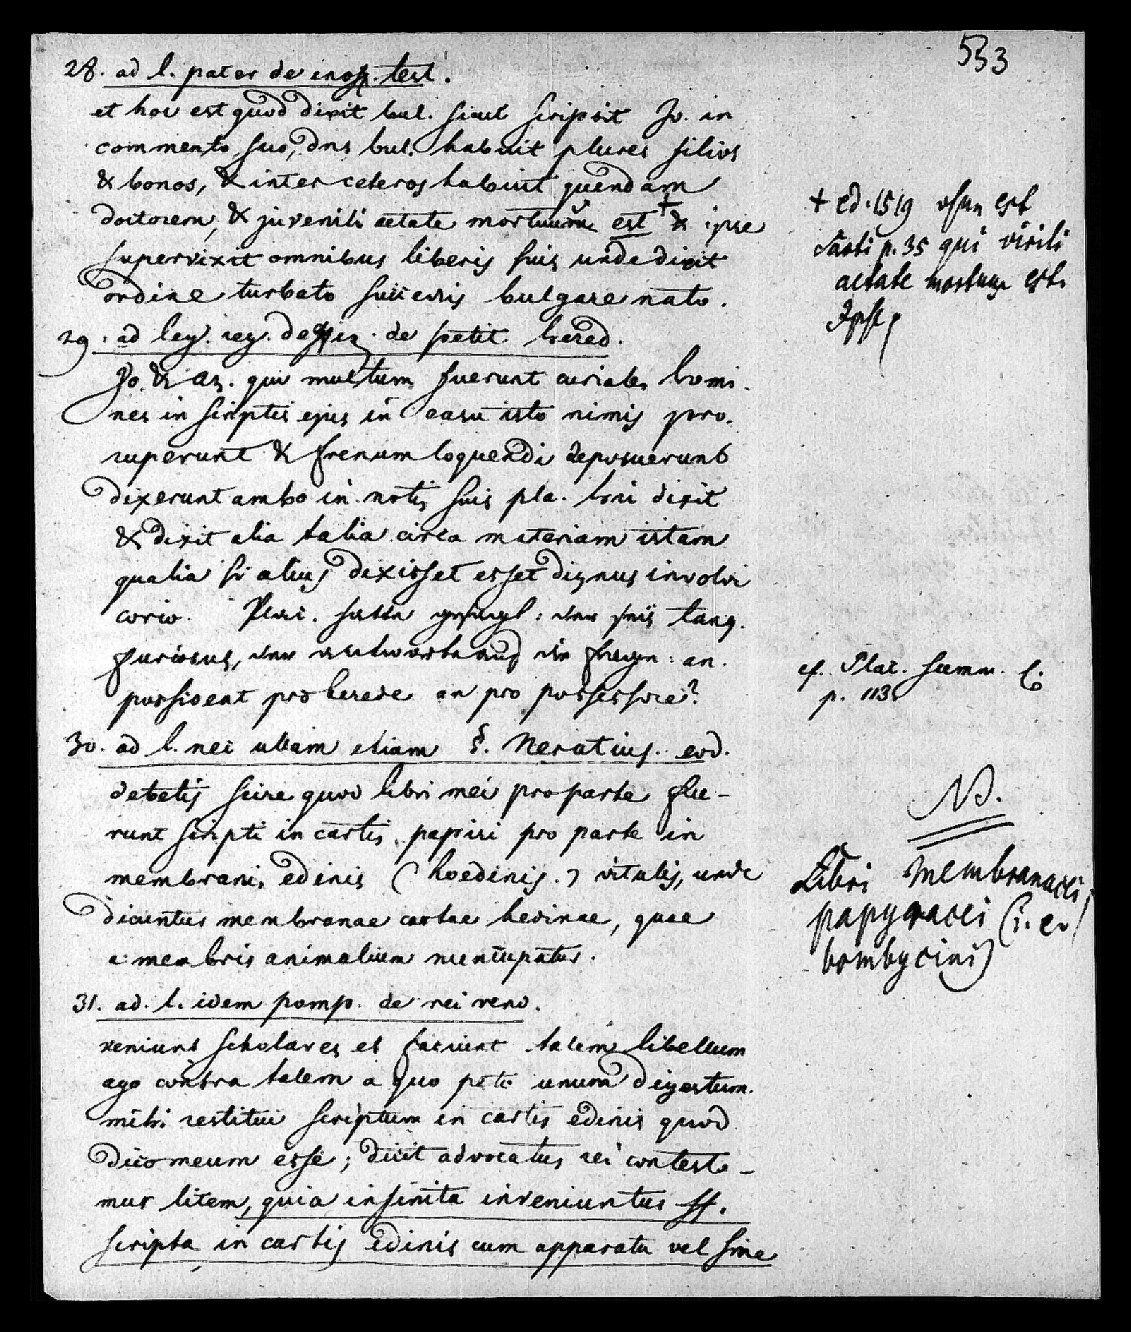 533
28. ad l. pater de inof. test.
et hoc est quod dixit bul. sicut scripsit Jo. in
commento suo, dns bul. habuit plures filios
& bonos, & inter ceteros habuit quendam
doctorem, & juvenili aetate mortuum est + & ipse
supervixit omnibus liberis suis unde dixit
ordine turbato succedis bulgare nato.
+ ed. 1519
Sarti p. 35 qui virili
aetate mortuus est.
Ipse
29. ad leg. reg. de petit. hered.
Jo. & az. qui multum fuerunt curiales homi-
nes in scriptis ejus in casu isto nimis pro-
ruperunt & frenum loquendi deposuerunt
dixerunt ambo in notis suis pla. hoc dixit
& dixit alia talia circa materiam istam
qualia si alius dixisset esset dignus involvi
corio. Plac. hatte gesagt: tanq.
furiosus, an.
possideat pro herede an pro possessore?
cf. Plac. Summ. C.
p. 113
30. ad l. nec ullam etiam §. Neratius. eod.
debetis scire quod libri mei pro parte fue-
runt scripti in cartis papiri pro parte in
membranis edinis (hoedinis.) vitulis, unde
dicuntur membranae cartae hedinae, quae
a membris animalium nuncupatur.
NB.
Libri membranacei
papyracei (i. e.
bombycini)
31. ad. l. idem pomp. de rei vend.
veniunt scholares et faciunt talem libellum
ago contra talem a quo peto unum digestum
mihi restitui scriptum in cartis edinis quod
dico meum esse; dicit advocatus rei conteste-
mur litem, quia infinita inveniuntur ff.
scripta in cartis edinis cum apparatu vel sine